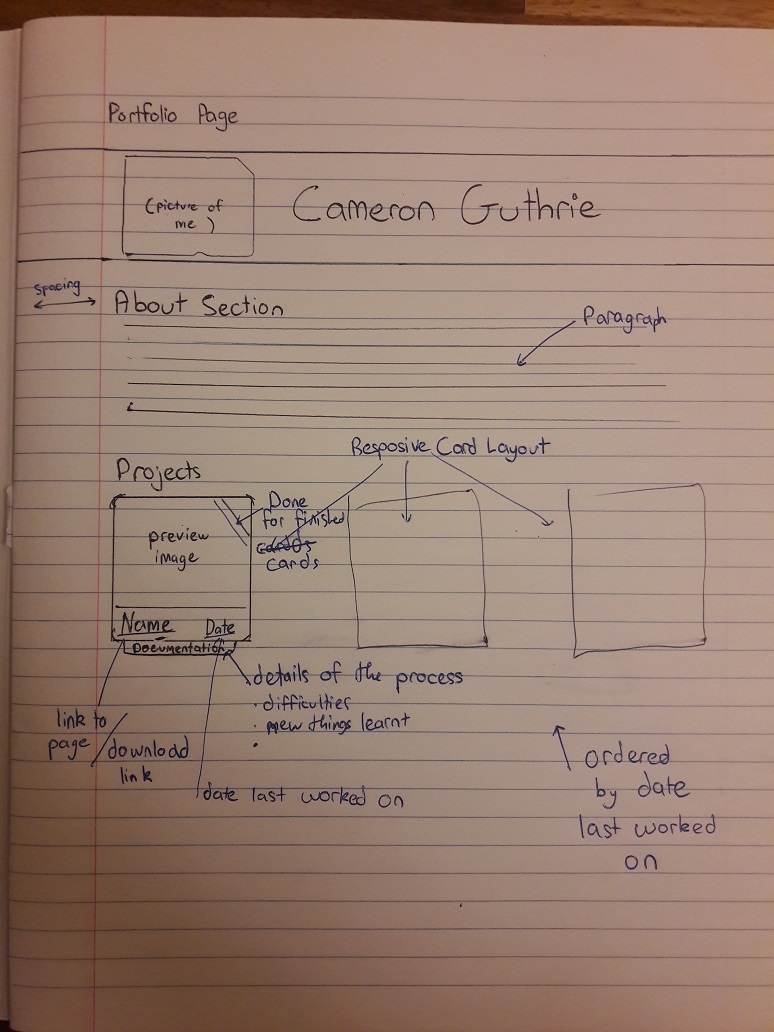 Portfolio Page
(picture of
me )
Cameron Guthrie
spacing
About Section
Paragraph
Resposive Card Layout
Projects
preview
image
Done
for finished
cards
cards
Name
Date
Documentation
details of the process
· difficulties
· new things learnt
·
link to
page /
download
link
date last worked on
ordered
by date
last worked
on